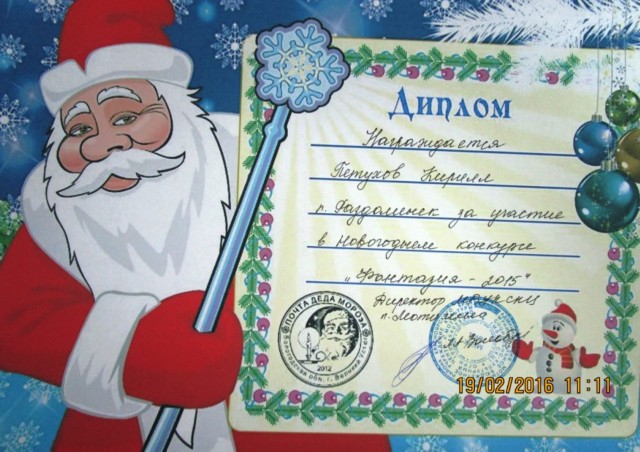 Диплом
Награждается
Петухов Кирилл
п. Раздолинск за участие
в Новогоднем конкурсе
„Фантазия - 2015"
Директор
п. Мотыгино
ПОЧТА ДЕДА МОРОЗА
Вологодская обл., г. Великий Устюг
2012
19/02/2016 11:11